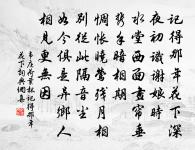 記得那年花下深
夜初識謝娘時
水堂西面畫簾垂
攜手暗相期
惆悵曉鶯殘月相
別從此隔音塵
如今俱是異鄉人
相見更無因
韋莊荷葉杯記得那年
花下詞典網集